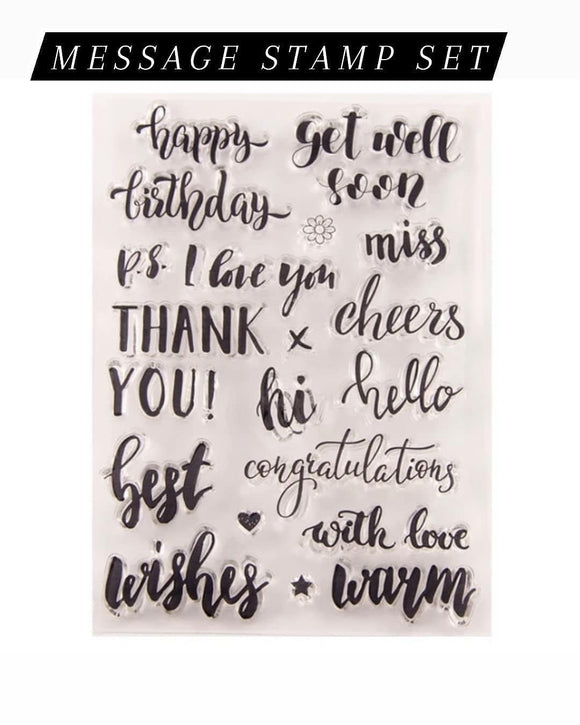 MESSAGE STAMP SET
happy
birthday
get well
soon
miss
p.s. I love you
THANK
YOU!
x
cheers
hi
hello
best
wishes
congratulations
with love
warm